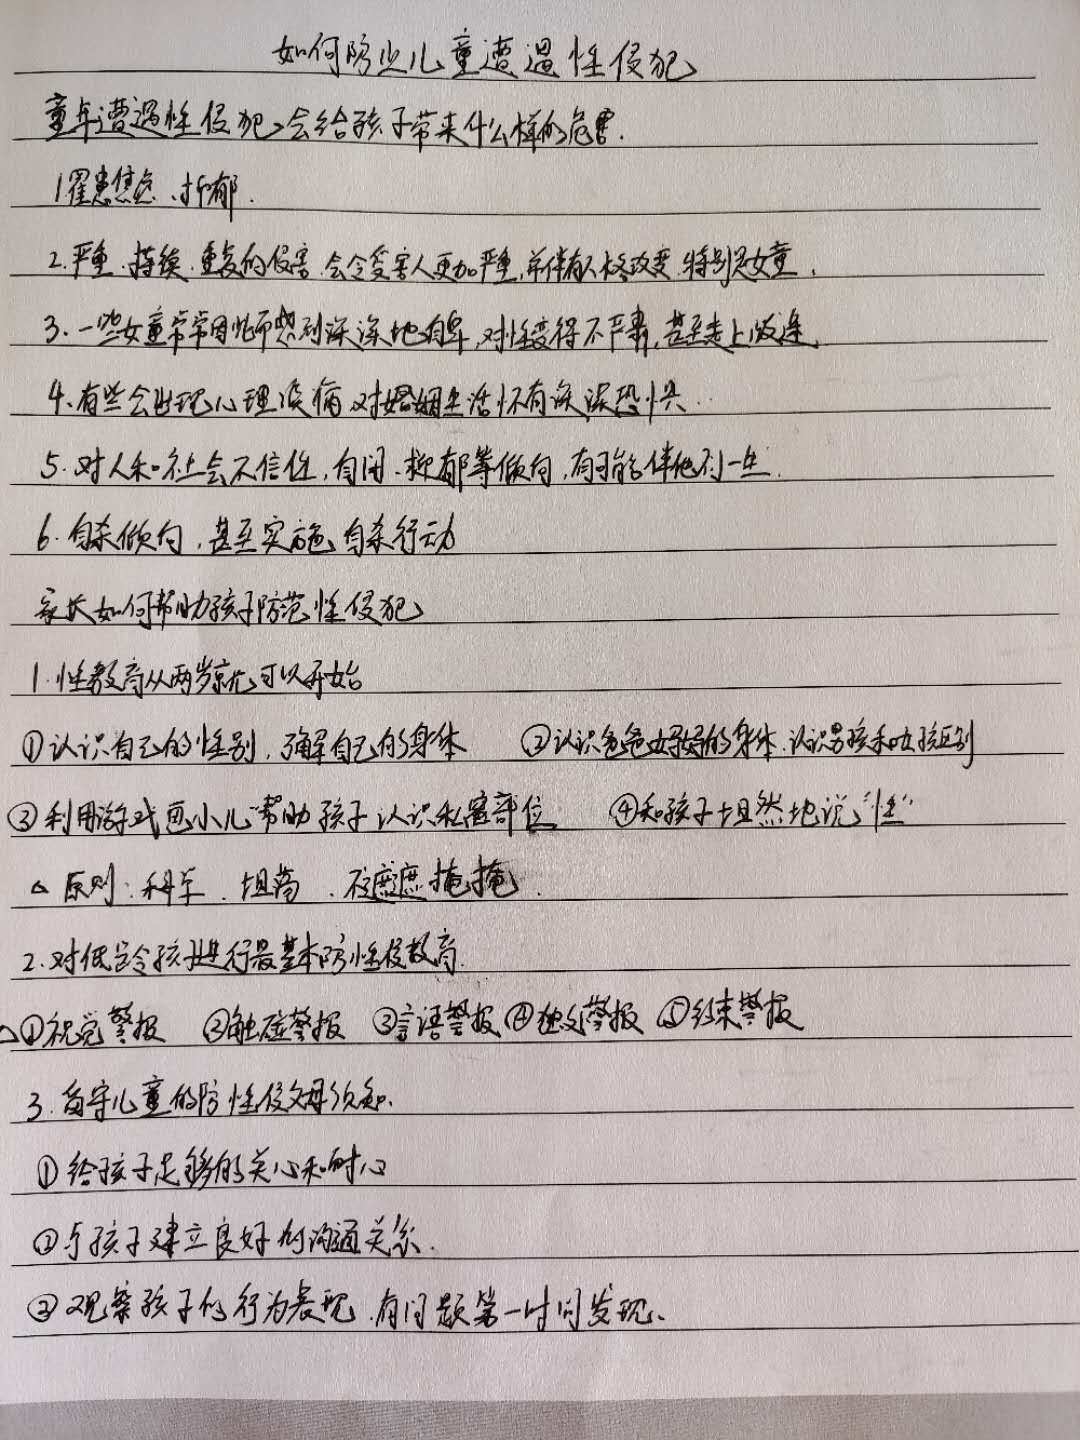 如何防止儿童遭遇性侵犯
童年遭遇性侵犯,会给孩子带来什么样的危害.
1罹患焦虑、抑郁.
2.严重、持续、重复的侵害,会令受害人更加严重,并伴有人格改变,特别是女童.
3.一些女童常常因此而感到深深地自卑,对性变得不严肃,甚至走上歧途.
4.有些会出现心理疾病,对婚姻生活怀有深深恐惧..
5.对人和社会不信任,自闭、抑郁等倾向,有可能伴他们一生.
6.自杀倾向,甚至实施自杀行动
家长如何帮助孩子防范性侵犯
1.性教育从两岁就可以开始
①认识自己的性别,了解自己的身体 ②认识爸爸妈妈的身体,认识男孩和女孩区别
③利用游戏画小儿"帮助孩子认识私密部位 ④和孩子坦然地说"性"
△原则:科学、坦荡、不遮遮掩掩.
2.对低龄孩子进行最基本防性侵教育.
△①视觉警报 ②触碰警报 ③言语警报 ④独处警报 ⑤约束警报
3.留守儿童的防性侵父母须知.
①给孩子足够的关心和耐心
②与孩子建立良好的沟通关系.
③观察孩子的行为表现,有问题第一时间发现.